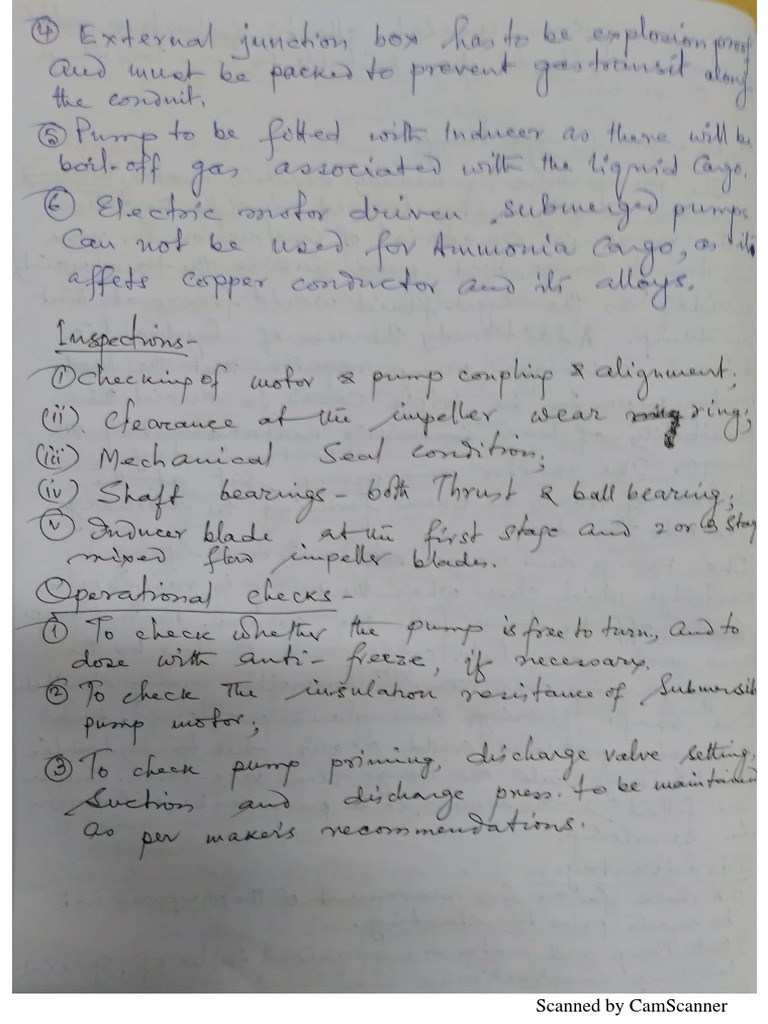 ④ External junction box has to be explosion proof
and must be packed to prevent gas transit along
the conduit.
⑤ Pump to be fitted with Inducer as there will be
boil-off gas associated with the liquid Cargo.
⑥ Electric motor driven submerged pumps
Can not be used for Ammonia Cargo, as it
affets copper conductor and its alloys.
Inspections-
① Checking of motor & pump coupling & alignment;
(ii). Clearance at the impeller wear ring;
(iii) Mechanical Seal condition;
(iv) Shaft bearings - both Thrust & ball bearing;
(v) Inducer blade at the first stage and 2 or 3 stag
mixed flow impeller blades.
Operational checks-
① To check whether the pump is free to turn, and to
dose with anti-freeze, if necessary.
② To check the insulation resistance of Submersib
pump motor;
③ To check pump priming, discharge valve setting,
Suction and discharge press. to be maintained
as per maker's recommendations.
Scanned by CamScanner